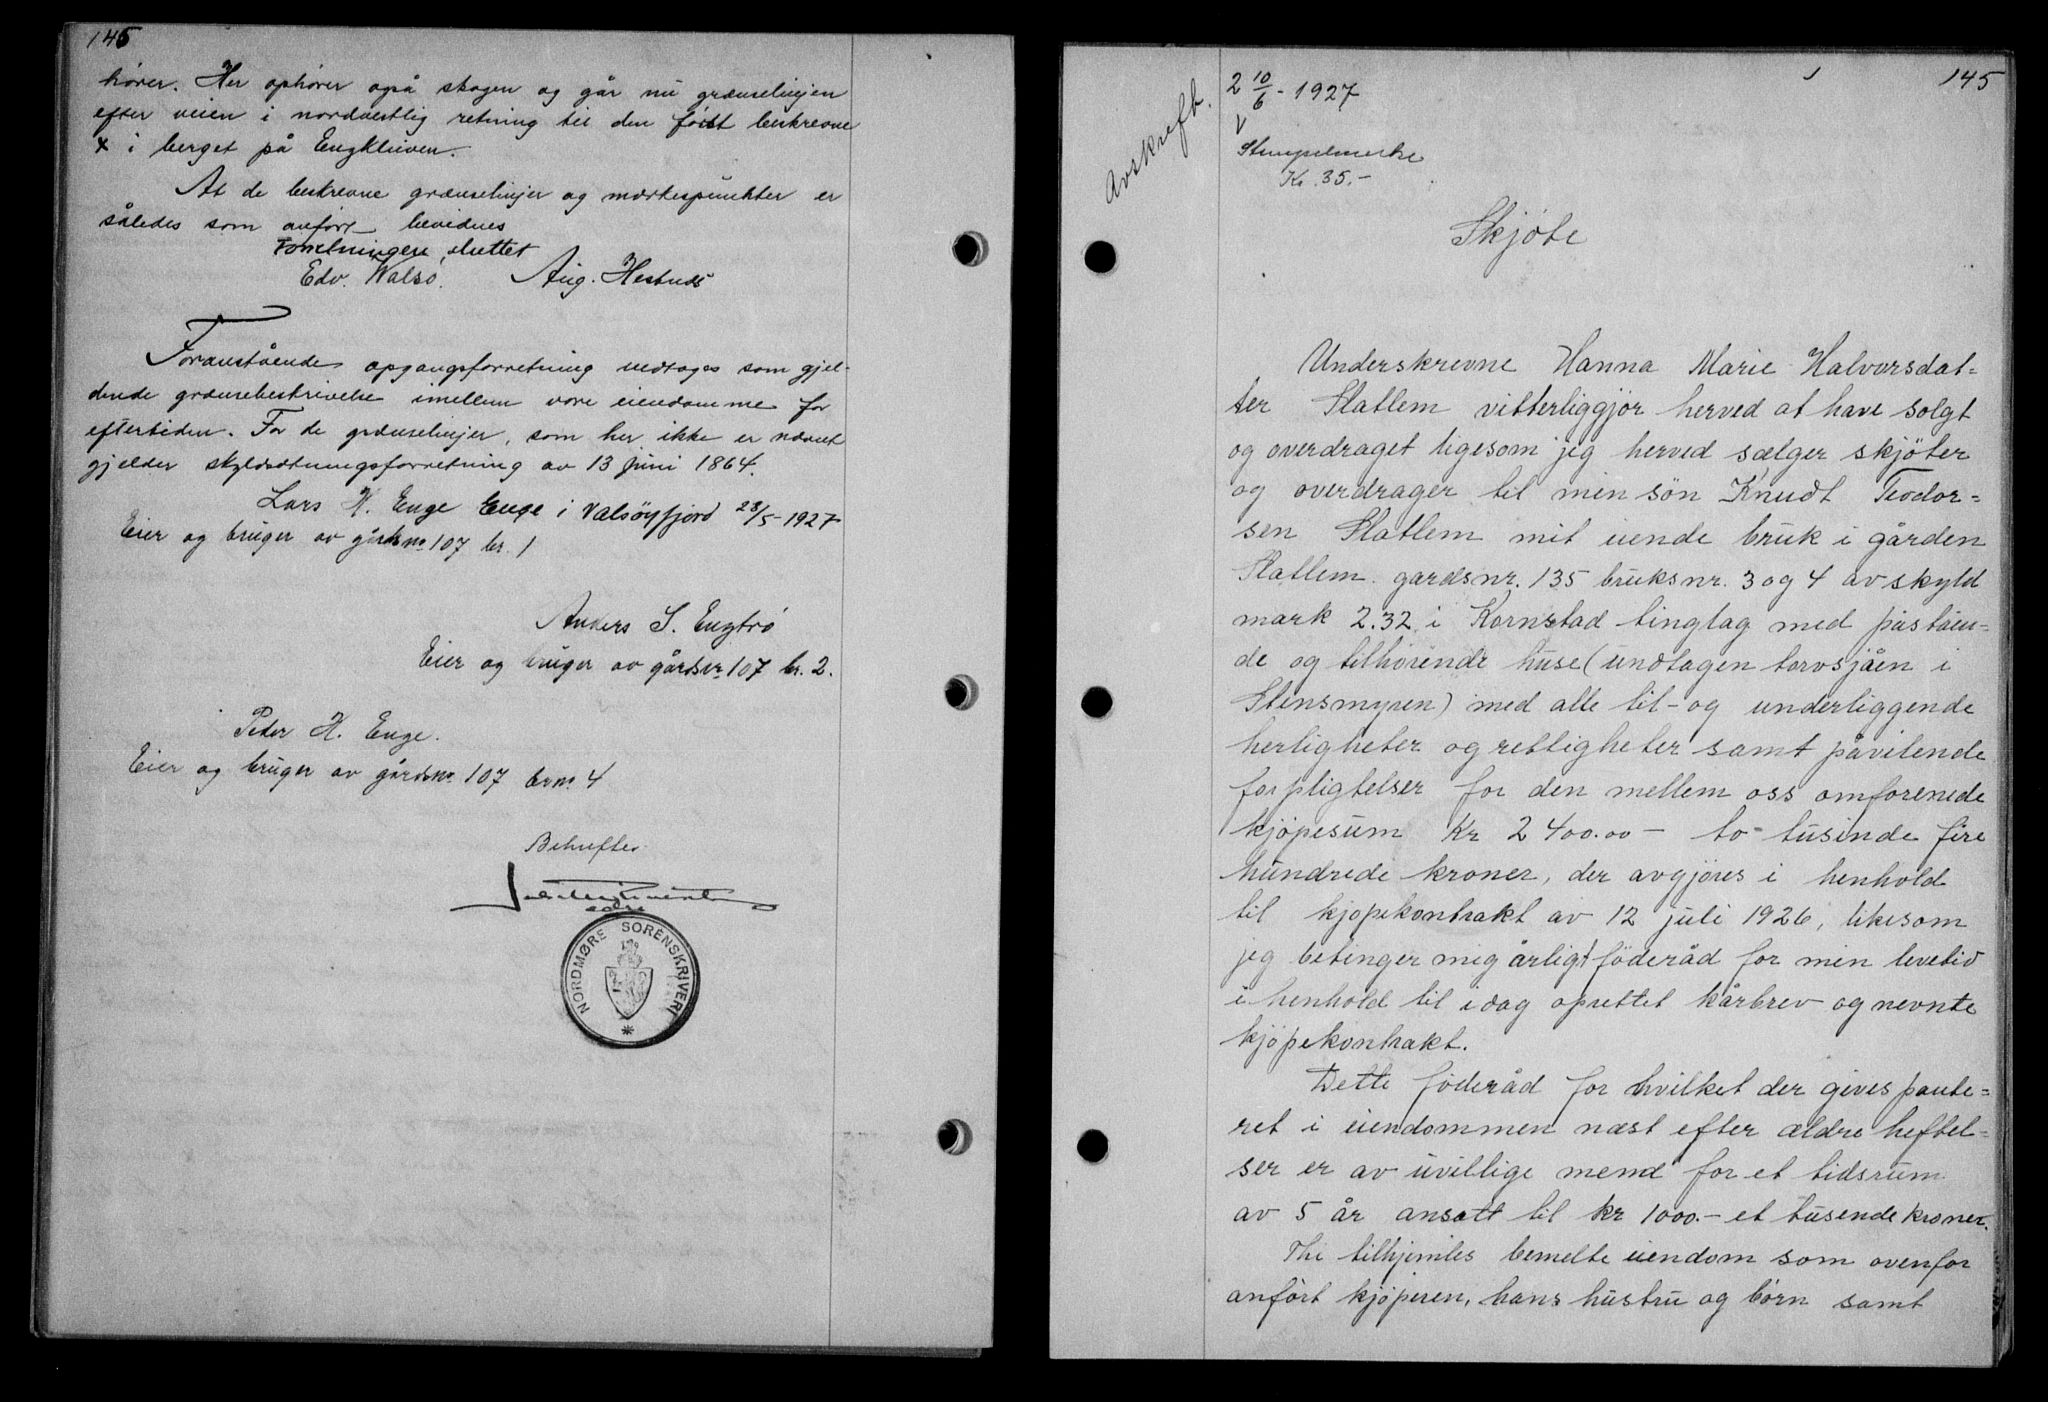 145
hører. Her ophører også skogen og går nu grænselinjen
efter veien i nordvestlig retning til den først beskrevne
x i berget på Engkleiven.
At de beskrevne grænselinjer og mærkespunkter er
således som anført bevidnes
Forretningen sluttet
Edv. Valsø. Aug. Hestnes
Foranstående opgangsforretning vedtages som gjel-
dende grænsebeskrivelse imellem vore eiendomme for
eftertiden. For de grænselinjer, som her ikke er nævnt
gjelder skyldsætningsforretning av 13 juni 1864.
Lars H. Enge Enge i Valsøyfjord 28/5-1927
Eier og bruger av gårdsnr 107 br. 1
Anders S. Engtrø
Eier og bruger av gårdsnr 107 br. 2.
Peder H. Enge.
Eier og bruger av gårdsnr. 107 brnr. 4
Bekreftes
NORDMØRE SORENSKRIVERI
Avskreftb.
2 10/6 - 1927
145
Stempelmerke
Kr. 35.-
Skjøte
Underskrevne Hanna Marie Halvorsdat=
ter Slatlem vitterliggjør herved at have solgt
og overdraget ligesom jeg herved sælger skjøter
og overdrager til min søn Knudt Teodor=
sen Slatlem mit eiende bruk i gården
Slatlem gardsnr. 135 bruksnr. 3 og 4 av skyld
mark 2.32 i Kornstad tinglag med påståen=
de og tilhørende huse (undtagen torvsjåen i
Stensmyren) med alle til- og underliggende
herligheter og rettigheter samt påvilende
forpligtelser for den mellem oss omforenede
kjøpesum Kr 2400.00 - to-tusinde fire
hundrede kroner, der avgjøres i henhold
til kjøpekontrakt av 12 juli 1926, likesom
jeg betinger mig årligt føderåd for min levetid
i henhold til idag oprettet kårbrev og nevnte
kjøpekontrakt.
Dette føderåd for hvilket der gives pante=
ret i eiendommen næst efter ældre heftel=
ser er av uvillige mend for et tidsrum
av 5 år ansatt til kr 1000.- et tusende kroner.
Thi tilhjemles bemelte eiendom som ovenfor
anført kjøperen, hans hustru og børn samt